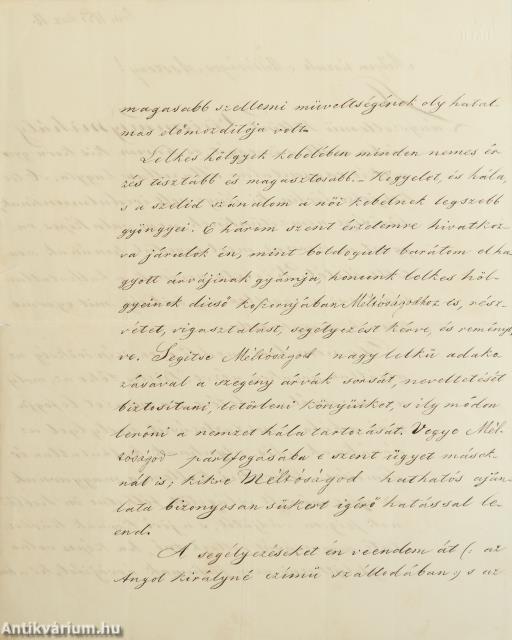 magasabb szellemi műveltségének oly hatal-
mas előmozdítója volt.
Lelkes hölgyek kebelében minden nemes ér-
zés tisztább és magasztosabb. – Kegyelet, és hála,
s a szelíd szánalom a női kebelnek legszebb
gyöngyei. E három szent érzelemre hivatkoz-
va járulok én, mint boldogult barátom elha-
gyott árvájinak gyámja, honunk lelkes höl-
gyeinek dicső koszorujában Méltóságodhoz is, rész-
vétet, vigasztalást, segélyezést kérve, és reményl-
ve. Segítse Méltóságod nagy lelkü adako-
zásával a szegény árvák sorsát, neveltetését
biztosítani, letörleni könyüiket, s ily módon
leróni a nemzet hála tartozását. Vegye Mél-
tóságod pártfogásába e szent ügyet mások-
nál is; kikre Méltóságod hathatós aján-
lata bizonyosan sükert igérő hatással le-
end.
A segélyezéseket én veendem át (: az
Angol királyné czímü szállodában,) s az
Antikvárium.hu